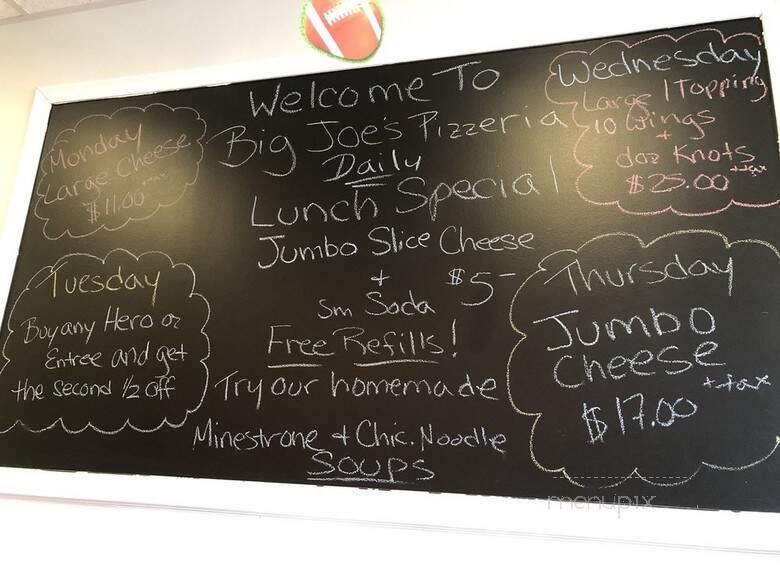 Welcome To
Big Joe's Pizzeria
Daily
Lunch Special
Jumbo Slice Cheese
+ $5-
Sm Soda
Free Refills!
Try our homemade
Minestrone + Chic. Noodle
Soups
Monday
Large Cheese
$11.00 +tax
Tuesday
Buy any Hero or
Entree and get
the second 1/2 off
Wednesday
Large 1 Topping
10 Wings
+
doz Knots
$25.00 +tax
Thursday
Jumbo
Cheese
$17.00 +tax
menupix